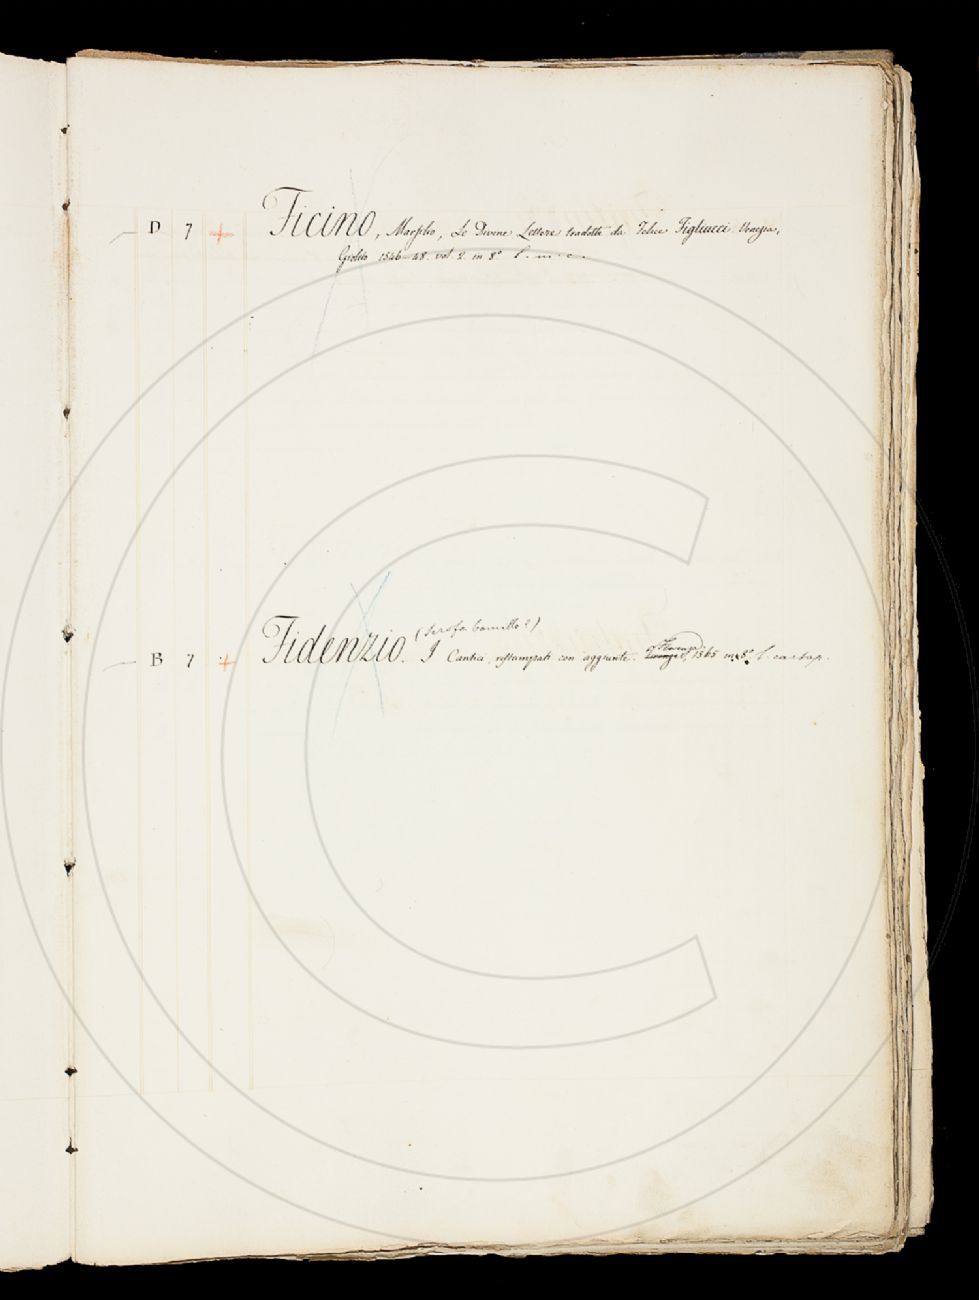 D 7 + Ficino, Marsilio, Le Divine Lettere tradotte da Felice Figliucci Venezia,
Giolito 1546-48. vol. 2. in 8° l. m. c.
(Scrofa Camillo?)
B 7 + Fidenzio. I Cantici, ristampati con aggiunte. Firenze 1565 in 8° l. cartap.